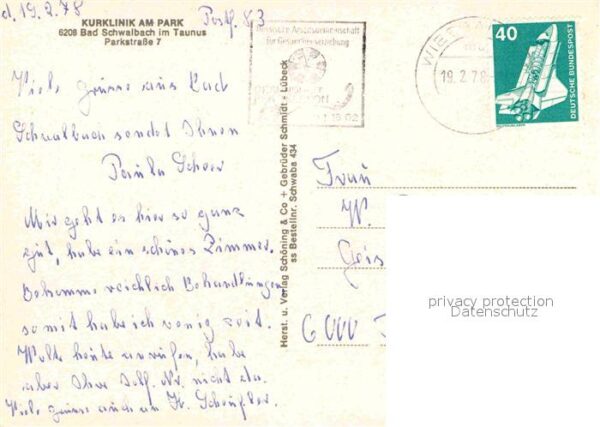 d. 19.2.78
KURKLINIK AM PARK
6208 Bad Schwalbach im Taunus
Parkstraße 7
Postf. 83
Viele Grüsse aus Bad
Schwalbach sendet Ihnen
Paula
Mir geht es hier so ganz
gut, habe ein schönes Zimmer.
Bekomme reichlich Behandlungen
somit habe ich wenig Zeit.
Wollte heute anrufen, habe
aber Ihre Telf. Nr. nicht da.
Viele Grüsse auch an Fr.
Herst. u. Verlag Schöning & Co + Gebrüder Schmidt - Lübeck
ss Bestellnr. Schwaba 434
WIESBA
19.2.78
40
DEUTSCHE BUNDESPOST
Frau
W.
Geis
6000
privacy protection
Datenschutz